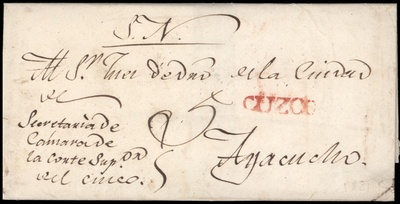 S. N.
Al Sr. Juez de dro. de la Ciudad
de
CUZCO
Secretaria de
Camara de
la Corte Sup.or
del Cuzco.
Ayacucho.